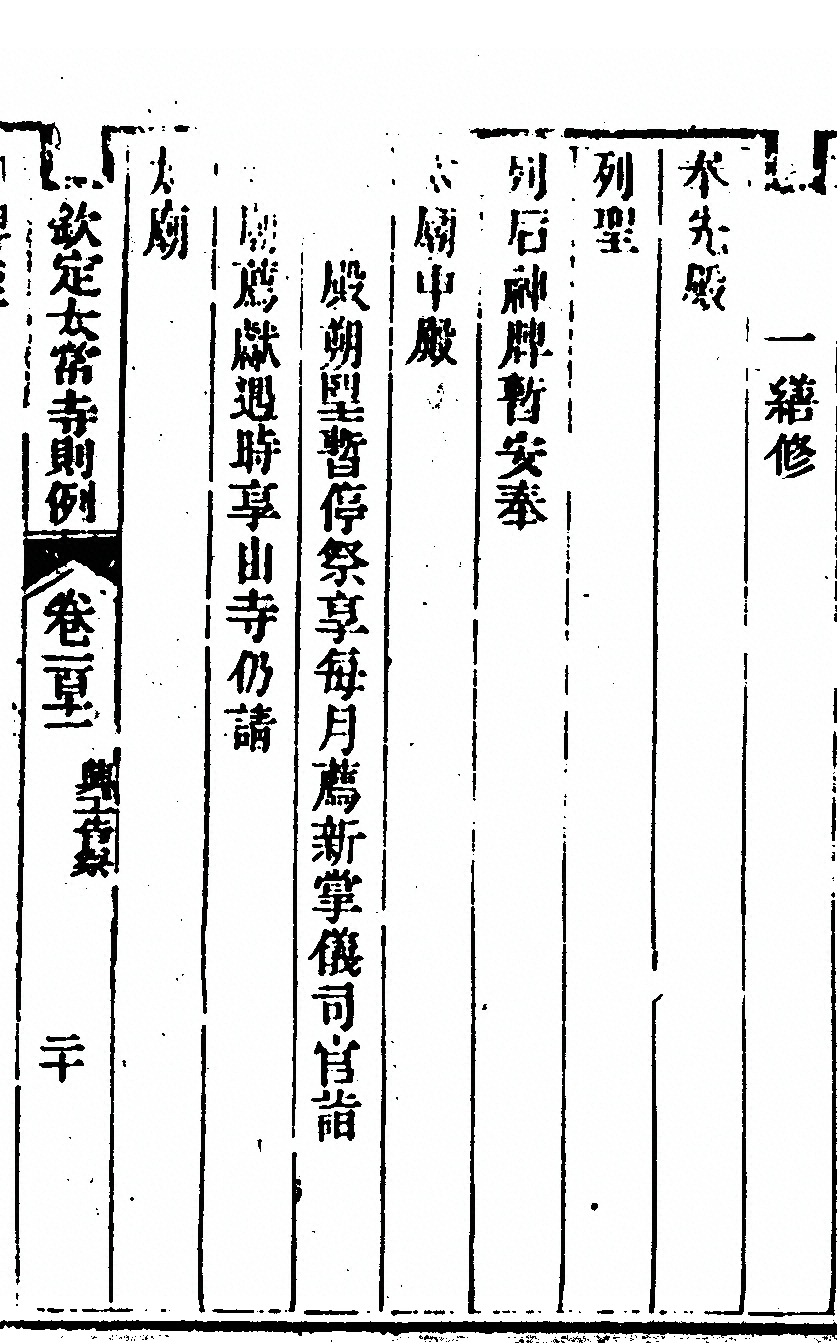 一繕修
奉先殿
列聖
列后神牌暫安奉
太廟中殿
殿朔望暫停祭享每月薦新掌儀司官詣
廟薦獻遇時享由寺仍請
太廟
欽定太常寺則例
卷一百十二
興工告祭
二十